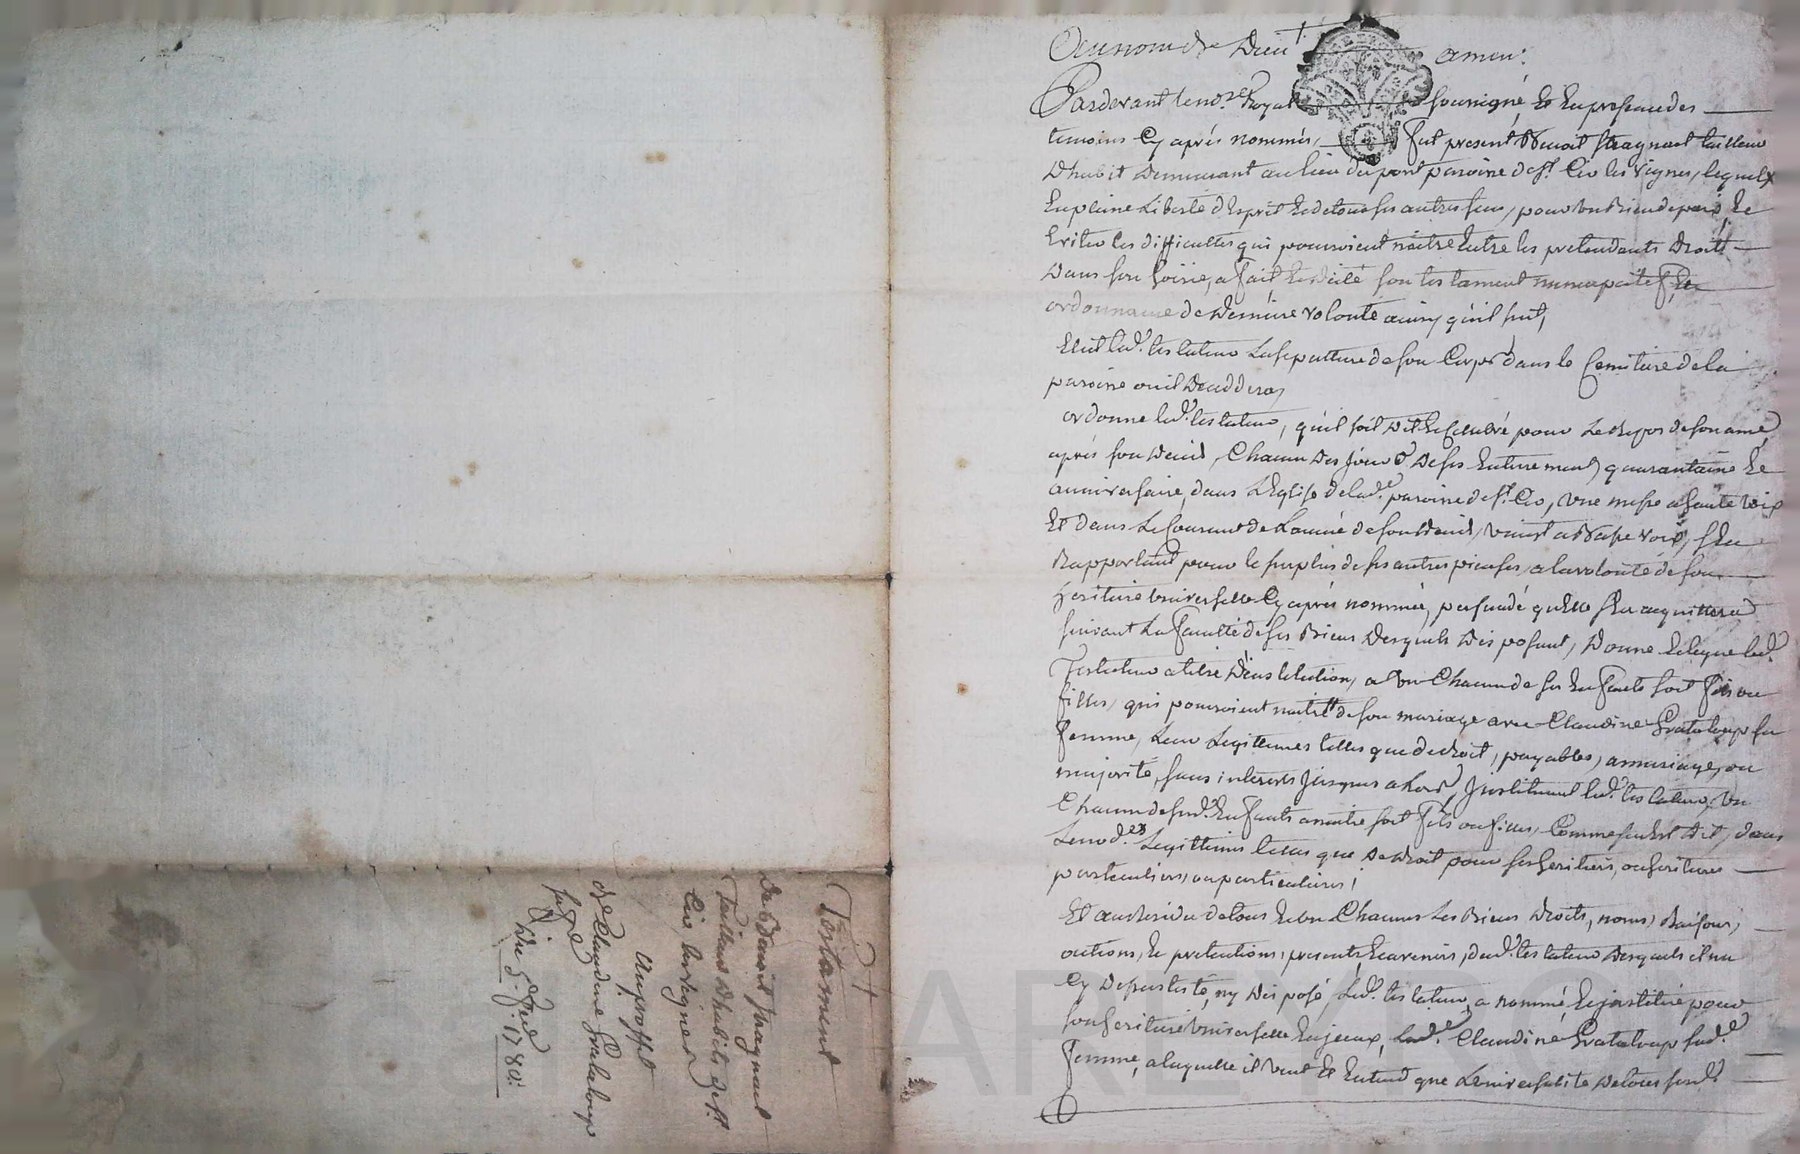 Au nom de Dieu amen.
Pardevant le no.re Royal soussigné, Et En presence des
temoins Cy aprés nommés, fut present Benoit tailleur
Dhabit Demeurant au lieu du pont paroisse de st. Cir les vignes, lequel
En pleine Liberté d'Esprit Et de tous ses autres sens, pour Et
Eviter les difficultés qui pourroient naitre Entre les pretendants Droit
Dans son hoirie, a fait Et dicté son testament nuncupatif, Et
ordonnance de Derniére volonté ainsy qu'il suit,
Elit led.t testateur La sepulture de son Corps dans le Cemitiére de la
paroisse ou il Deceddera,
ordonne led.t testateur, qu'il soit Dit Et Celebré pour Le Repos de son ame
aprés son Decés, Chacun Des jours De ses Enterrement, quarantaine Et
anniversaire, dans L'Eglise de lad.e paroisse de st. Cir, une messe a haute voix
Et dans Le Courant de L'année de son Decés, vingt a Basse voix, s'En
Rapportant pour le surplus de ses autres pieuses, a la volonté de son
heritiere universelle Cy aprés nommée, persuadé qu'Elle s'En acquittera
suivant La faculté de ses Biens Desquels Disposant, Donne Et legue led.t
Testateur a titre D'institution, a un Chacun de ses Enfants soit fils ou
filles, qui pourroient naitre de son mariage avec Claudine Grataloup sa
femme, Leur Legittimes telles que de droit, payables, a mariage, ou
majorité, sans interets jusques alors, Instituant led.t testateur, un
Chacun de sesd.ts Enfants a naitre soit fils ou filles, Comme sus Est Dit, dans
Leursd.es Legittimes telles que De droit pour ses heritiers, ou heritieres
particuliers, ou particulieres;
Et au Residu de tous Et un Chacuns Les Biens Droits, noms, Raisons,
actions, Et pretentions, presents, Et avenirs, dud.t testateur Desquels il n'a
Cy Dessus testé, ny Disposé, Led.t testateur, a nommé, Et institué pour
son heritiere universelle Lad.e Claudine Grataloup sad.e
femme, a laquelle il veut Et Entend que L'universalité De tous sesd.ts
Testament
de Benoit
Tailleur Dhabits de st.
Cir les vignes
Au proffit
de Claudine Grataloup
sa fe
Du 5.e fevr 1780.